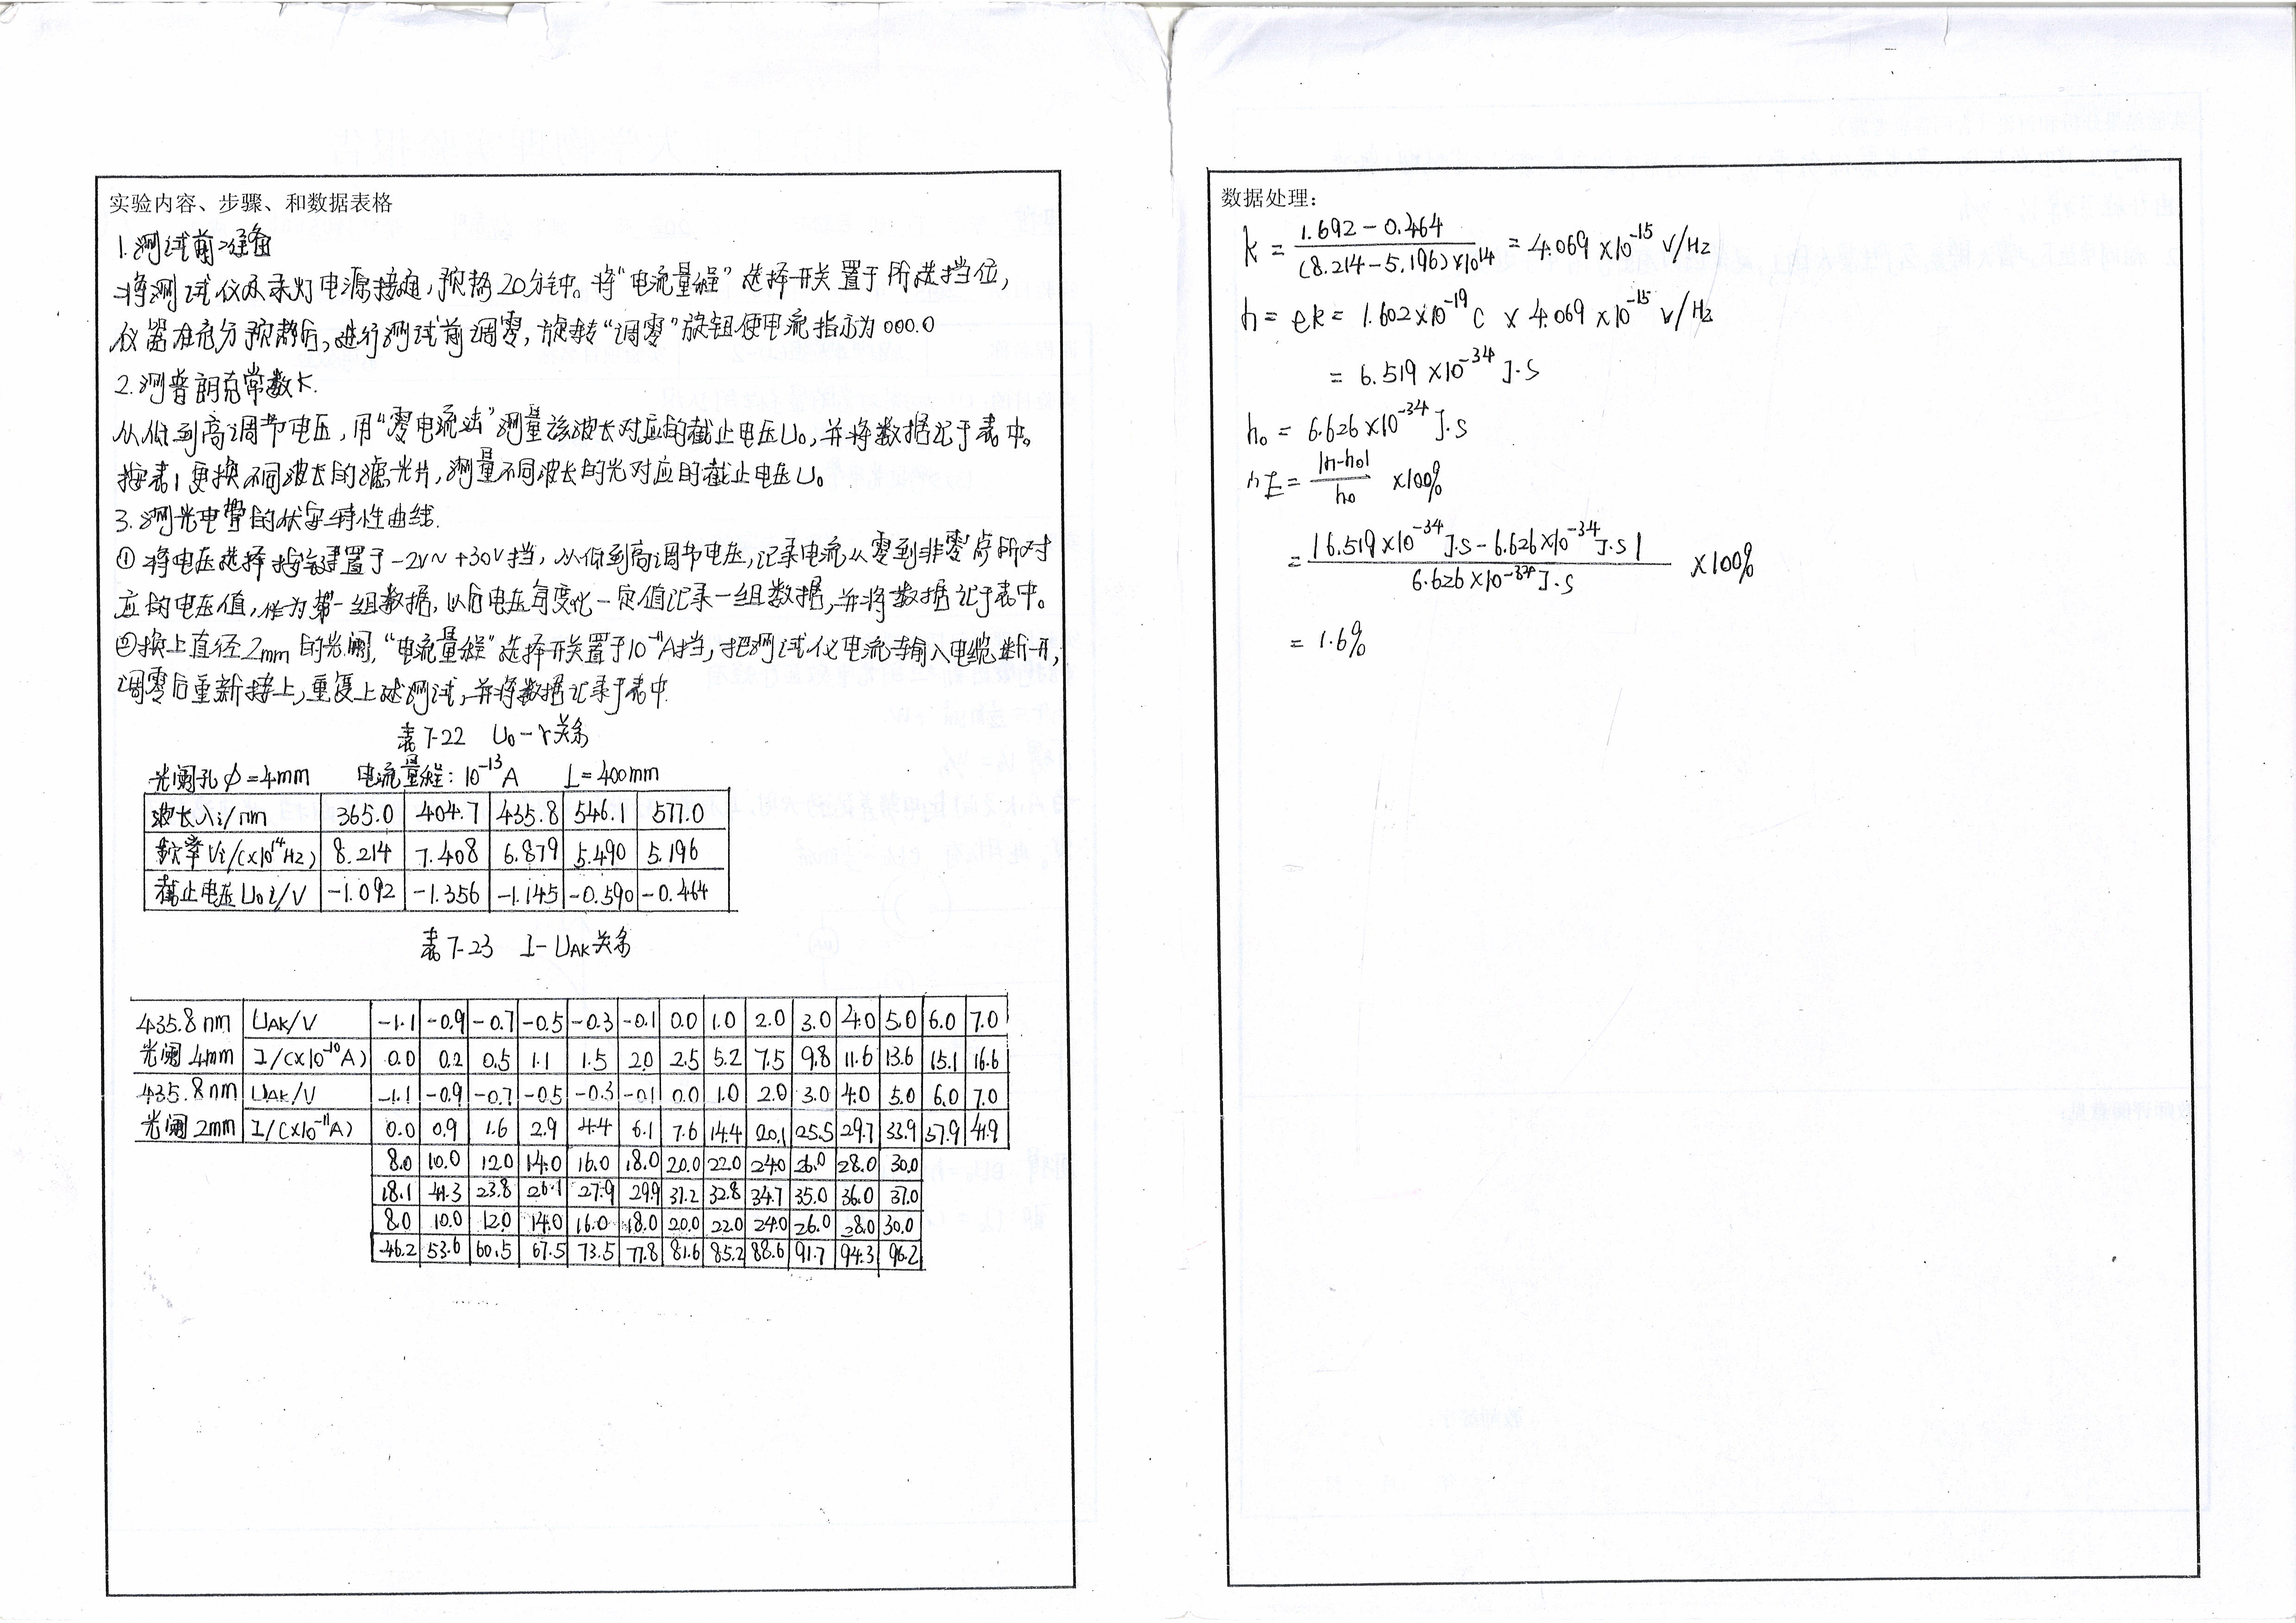 实验内容、步骤、和数据表格
1.测试前准备
将测试仪及汞灯电源接通,预热20分钟。将“电流量程”选择开关置于所选挡位,
仪器在充分预热后,进行测试前调零,旋转“调零”旋钮使电流指示为000.0
2.测普朗克常数K.
从低到高调节电压,用“零电流法”测量该波长对应的截止电压U₀,并将数据记于表中。
按表1更换不同波长的滤光片,测量不同波长的光对应的截止电压U₀
3.测光电管的伏安特性曲线.
①将电压选择按键置于-2V~+30V挡,从低到高调节电压,记录电流从零到非零点所对
应的电压值,作为第一组数据,以后电压每变化一定值记录一组数据,并将数据记于表中。
②换上直径2mm的光阑,“电流量程”选择开关置于10⁻¹¹A挡,把测试仪电流输入电缆断开,
调零后重新接上,重复上述测试,并将数据记录于表中.
表7-22 U₀-γ关系
光阑孔φ=4mm 电流量程:10⁻¹³A L=400mm
波长λi/nm 365.0 404.7 435.8 546.1 577.0
频率νi/(×10¹⁴Hz) 8.214 7.408 6.879 5.490 5.196
截止电压U₀i/V -1.092 -1.356 -1.145 -0.590 -0.464
表7-23 I-UAK关系
435.8nm UAK/V -1.1 -0.9 -0.7 -0.5 -0.3 -0.1 0.0 1.0 2.0 3.0 4.0 5.0 6.0 7.0
光阑4mm I/(×10⁻¹⁰A) 0.0 0.2 0.5 1.1 1.5 2.0 2.5 5.2 7.5 9.8 11.6 13.6 15.1 16.6
435.8nm UAK/V -1.1 -0.9 -0.7 -0.5 -0.3 -0.1 0.0 1.0 2.0 3.0 4.0 5.0 6.0 7.0
光阑2mm I/(×10⁻¹¹A) 0.0 0.9 1.6 2.9 4.4 6.1 7.6 14.4 20.1 25.5 29.7 33.9 37.9 41.9
8.0 10.0 12.0 14.0 16.0 18.0 20.0 22.0 24.0 26.0 28.0 30.0
18.1 23.8 26.1 27.9 29.9 31.2 32.8 34.7 35.0 36.0 37.0
8.0 10.0 12.0 14.0 16.0 18.0 20.0 22.0 24.0 26.0 28.0 30.0
46.2 53.6 60.5 67.5 73.5 77.8 81.6 85.2 88.6 91.7 94.3 96.2
数据处理:
k = (1.692-0.464)/((8.214-5.196)×10¹⁴) = 4.069×10⁻¹⁵ V/Hz
h = ek = 1.602×10⁻¹⁹C × 4.069×10⁻¹⁵ V/Hz
= 6.519×10⁻³⁴ J·S
h₀ = 6.626×10⁻³⁴ J·S
E = |h-h₀|/h₀ ×100%
= |6.519×10⁻³⁴J·S-6.626×10⁻³⁴J·S|/6.626×10⁻³⁴J·S ×100%
= 1.6%